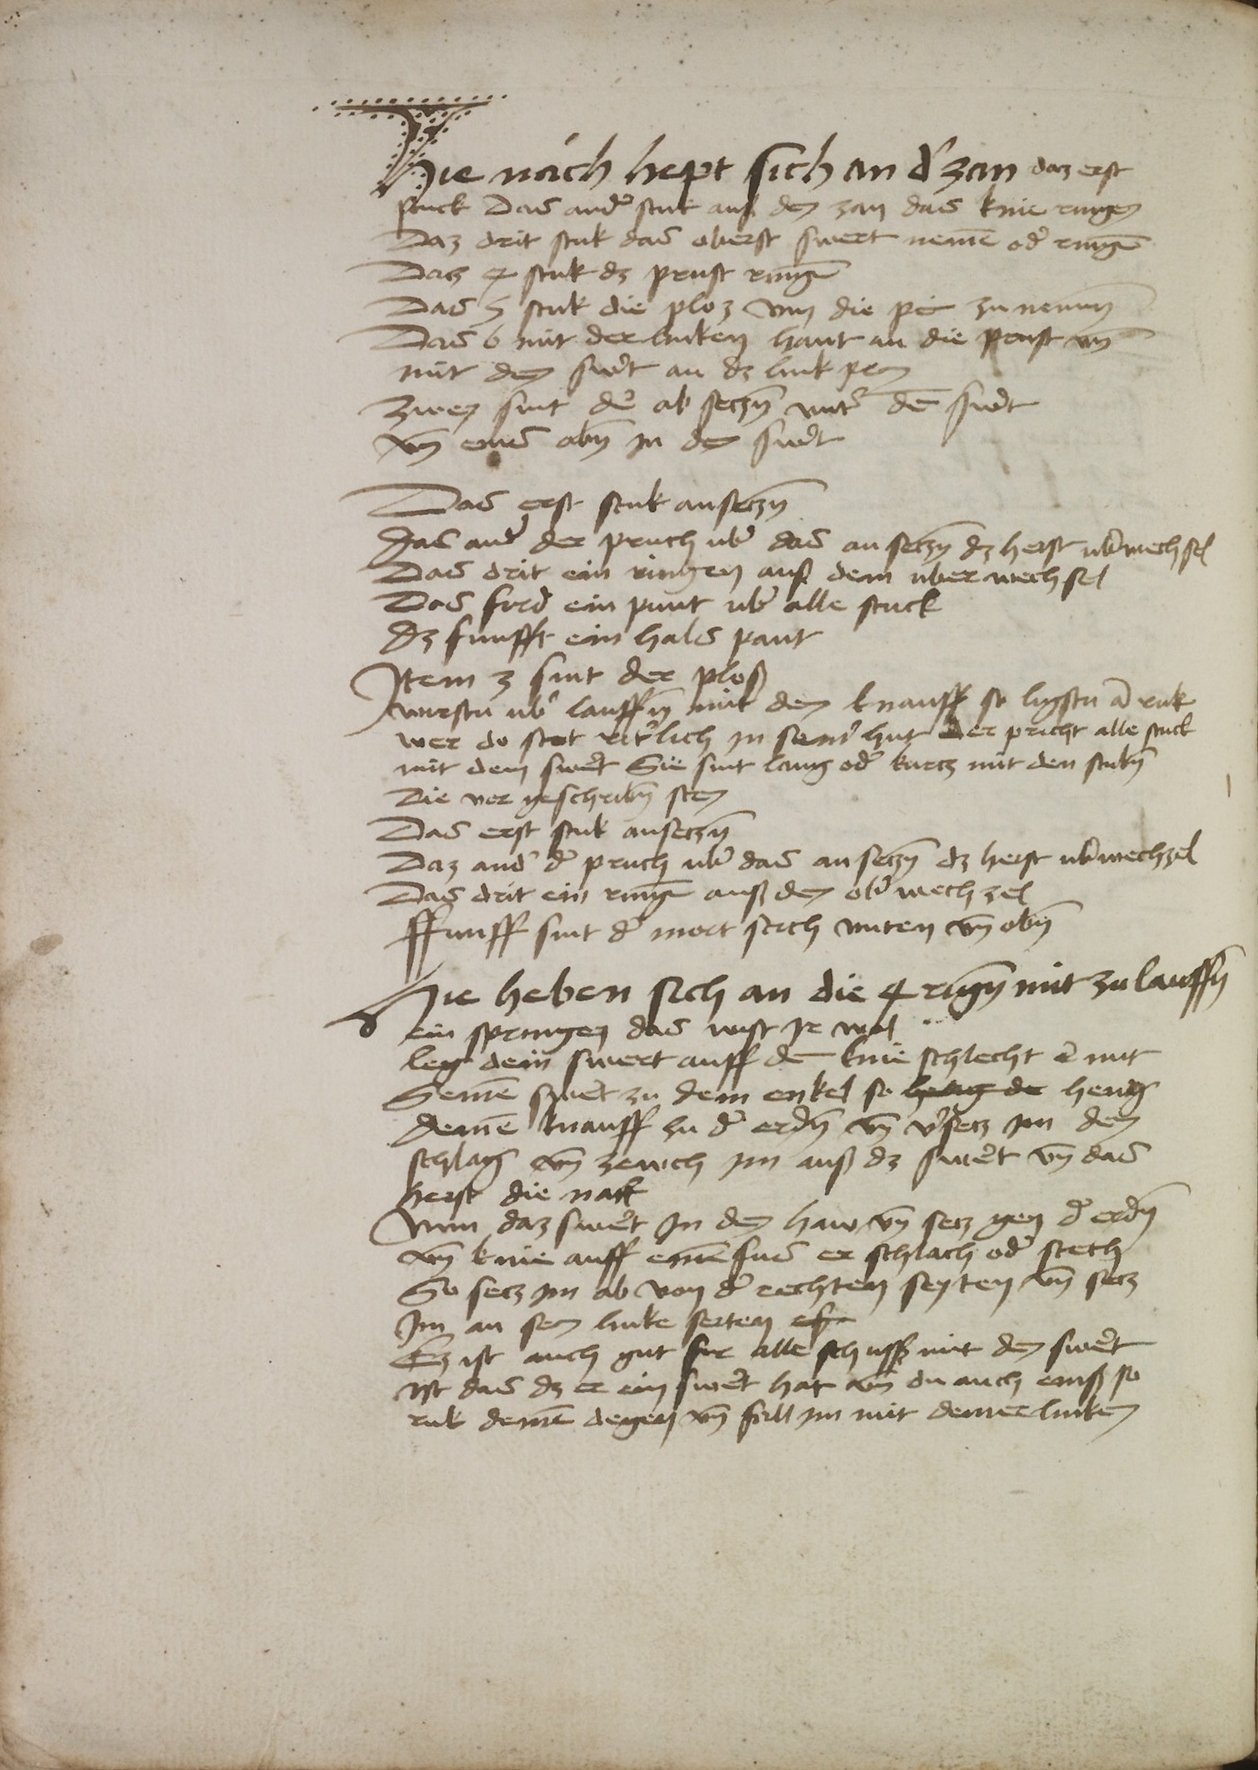 Hie nach hept sich an d' zan daz erst
stuck Das ander stuk auß den zan das knie ringen
Daz drit stuk das oberst swert nemē od' ringē
Daz 4 stuk dz prust ringē
Das 5 stuk die ploz vm die pei zu nemen
Das 6 mit der linken hant an die prust vn̄
mit den swert an dz link
zwen sint der ab seczn̄ vnt' dē swert
vn̄ eins obn̄ in den swert
Das erst stuk anseczn̄
Das and' der pruch vb' das an seczn̄ dz heist vb'wechsel
Das drit ein ringen auß dem vber wechsel
Das fird ein punt vb' alle stuck
dz funfft ein hals pant
Item 3 sint der ploß
wirstu vb' lauffn̄ mit den knauff so ligstu ā ruk
wer do stet rit'lich in sein' hut der pricht alle stuck
mit dem swert Sie sint lang oder kurcz mit den stukn̄
Die vor geschribn̄ sten
Das erst stuk anseczn̄
Daz and' d' pruch vb' das an seczn̄ dz heist vb'wechzel
Das drit ein ringē auß den ob' wechzel
ffunff sint d' mort stich vnten vn̄ obn̄
Hie heben sich an die 4 rīgn̄ mit zu lauffn̄
ein springen das wist ir wol
leg dein swert auff dē knie schlecht er mit
Seinē swert zu dem enkel so heng de heng
deinē knauff zu d' erdn̄ vn̄ v'secz im den
schlag vn̄ zewch im auß dz swert vn̄ das
heist die
Nim daz swert In den haw vn̄ secz gen d' erdn̄
vn̄ knie auff einē fuß er schlach od' stech
So secz im ab von d' rechten seyten vn̄ secz
Im an sein linke seiten
Ez ist auch gut fur alle schuß mit den swert
ist das dz er ein swert hat vn̄ du auch einß so
ruk deinē degen vn̄ fall im mit deiner linken